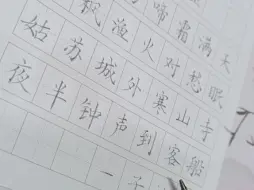 啼霜满天
枫渔火对愁眠
姑苏城外寒山寺
夜半钟声到客船
一